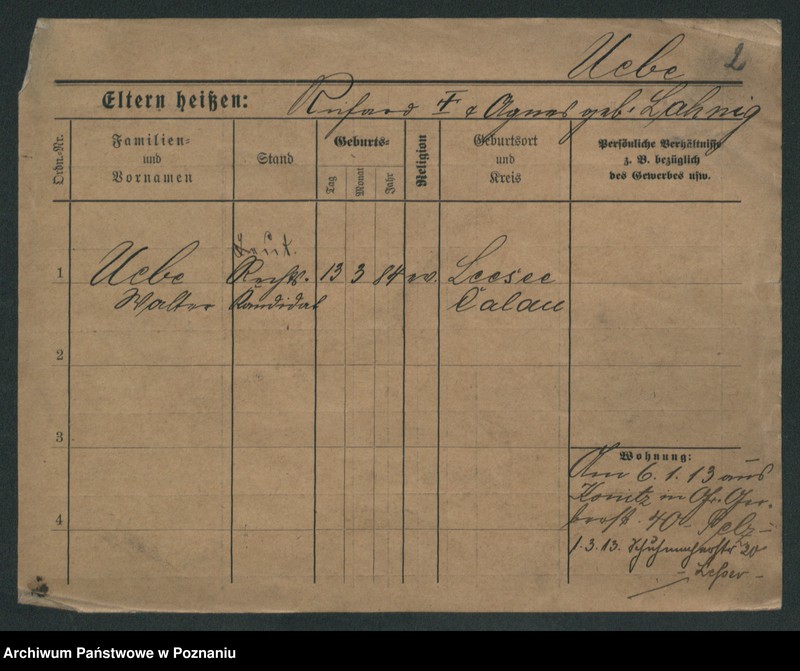 Uebe 2
Eltern heißen: Richard † & Agnes geb. Lahnig
Ordn.-Nr.
Familien-
und
Vornamen
Stand
Geburts-
Tag
Monat
Jahr
Religion
Geburtsort
und
Kreis
Persönliche Verhältnisse
z. B. bezüglich
des Gewerbes usw.
1 Uebe Rechts- 13 3 84 ev. Leesee
Walter Kandidat Calau
2
3
Wohnung:
Am 6.1.13 aus
Konitz in Gr. Ger-
berstr. 40 Pelz
4
1.3.13. Schuhmacherstr 20
- Lesser -
Archiwum Państwowe w Poznaniu